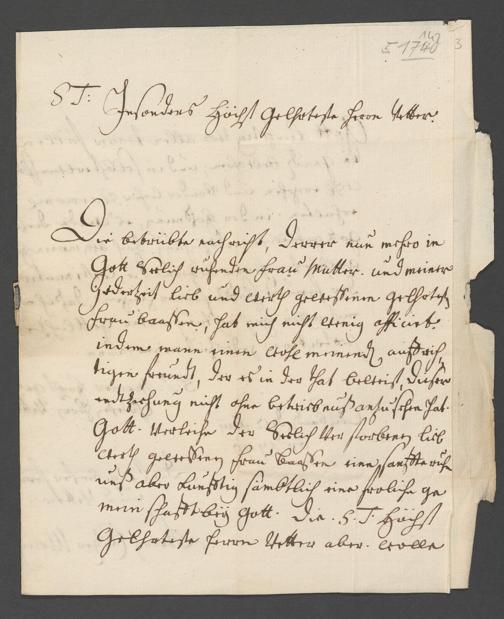 1740
3
S T: Insonders Höchst Gelehrteste Herrn Vetter.
Die betrübte nachricht, derrer nun mehro in
Gott Seelich ruhenden Frau Mutter. und meiner
Jederzeit lieb und werth gewessenen
Frau baassen, hat mich nicht wenig afficiret.
indem mann einen wohl meinend auffrich,
tigen freundt, der es in der that beweist,
nicht ohne betrieb nuß ansuschen kat.
Gott. Verleihe der Seelich Ver storbenen lieb
werth gewessenen Frau baassen eine sanffte ruh
unß aber künfftig sämbtlich eine froliche ge
mein schafft beÿ Gott. Die. S. T. Höchst
Gelehrteste Herrn Vetter aber. wolle